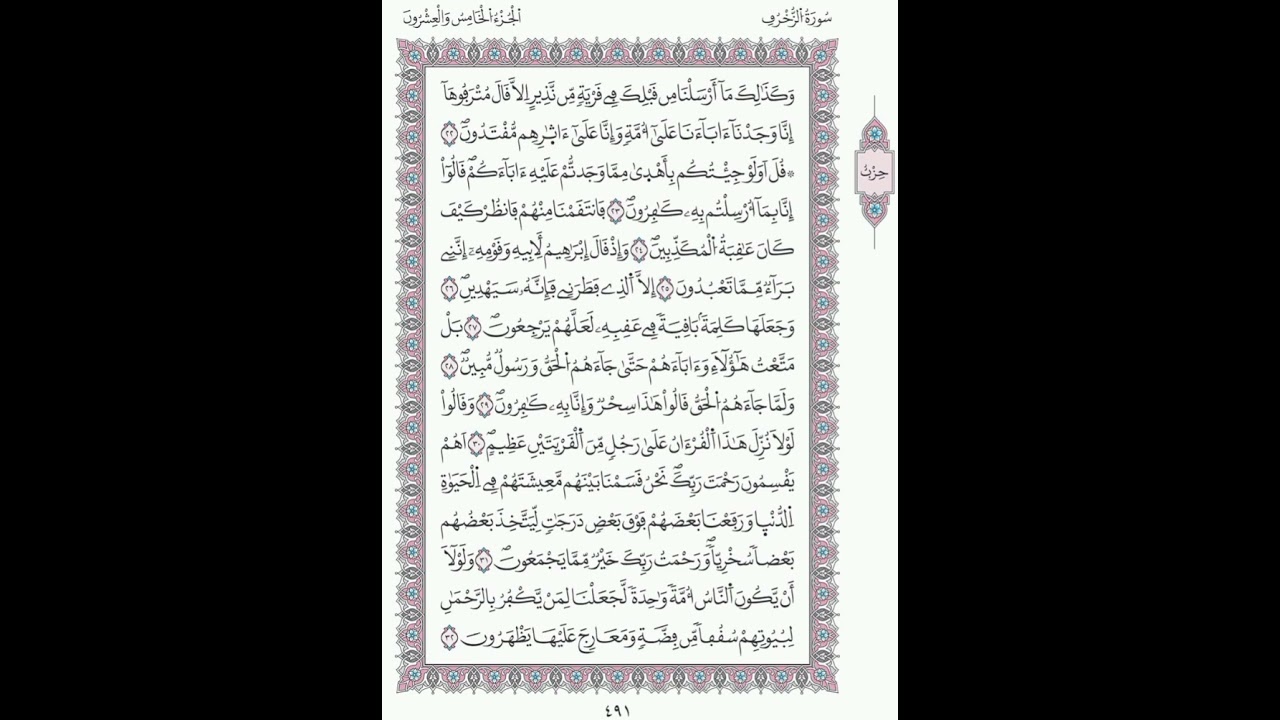 سُورَةُ الزُّخْرُفِ
الْجُزْءُ الْخَامِسُ وَالْعِشْرُونَ
وَكَذَٰلِكَ مَآ أَرْسَلْنَا مِن قَبْلِكَ فِے قَرْيَةٖ مِّن نَّذِيرٍ اِلَّا قَالَ مُتْرَفُوهَآ
إِنَّا وَجَدْنَآ ءَابَآءَنَا عَلَىٰٓ أُمَّةٖ وَإِنَّا عَلَىٰٓ ءَاثٰ۪رِهِم مُّقْتَدُونَۖ ٢٢
۞ قُلَ اَوَلَوْ جِئْتُكُم بِأَهْد۪ىٰ مِمَّا وَجَدتُّمْ عَلَيْهِ ءَابَآءَكُمْۖ قَالُوٓاْ
إِنَّا بِمَآ أُرْسِلْتُم بِهِۦ كَٰفِرُونَۖ ٢٣ فَانتَقَمْنَا مِنْهُمْ فَانظُرْ كَيْفَ
كَانَ عَٰقِبَةُ اُ۬لْمُكَذِّبِينَۖ ٢٤ وَإِذْ قَالَ إِبْرَٰهِيمُ لِأَبِيهِ وَقَوْمِهِۦٓ إِنَّنِے
بَرَآءٞ مِّمَّا تَعْبُدُونَ ٢٥ إِلَّا اَ۬لذِے فَطَرَنِے فَإِنَّهُۥ سَيَهْدِينِۖ ٢٦
وَجَعَلَهَا كَلِمَةَۢ بَاقِيَةٗ فِے عَقِبِهِۦ لَعَلَّهُمْ يَرْجِعُونَۖ ٢٧ بَلْ
مَتَّعْتُ هَٰٓؤُلَآءِ وَءَابَآءَهُمْ حَتَّىٰ جَآءَهُمُ اُ۬لْحَقُّ وَرَسُولٞ مُّبِينٞۖ ٢٨
وَلَمَّا جَآءَهُمُ اُ۬لْحَقُّ قَالُواْ هَٰذَا سِحْرٞ وَإِنَّا بِهِۦ كَٰفِرُونَۖ ٢٩ وَقَالُواْ
لَوْلَا نُزِّلَ هَٰذَا اَ۬لْقُرْءَانُ عَلَىٰ رَجُلٖ مِّنَ اَ۬لْقَرْيَتَيْنِ عَظِيمٍۖ ٣٠ اَهُمْ
يَقْسِمُونَ رَحْمَتَ رَبِّكَۖ نَحْنُ قَسَمْنَا بَيْنَهُم مَّعِيشَتَهُمْ فِے اِ۬لْحَيَوٰةِ
اِ۬لدُّنْي۪ا وَرَفَعْنَا بَعْضَهُمْ فَوْقَ بَعْضٖ دَرَجَٰتٖ لِّيَتَّخِذَ بَعْضُهُم
بَعْضاٗ سُخْرِيّاٗۖ وَرَحْمَتُ رَبِّكَ خَيْرٞ مِّمَّا يَجْمَعُونَۖ ٣١ وَلَوْلَآ
أَنْ يَّكُونَ اَ۬لنَّاسُ أُمَّةٗ وَٰحِدَةٗ لَّجَعَلْنَا لِمَنْ يَّكْفُرُ بِالرَّحْمَٰنِ
لِبُيُوتِهِمْ سُقُفاٗ مِّن فِضَّةٖ وَمَعَارِجَ عَلَيْهَا يَظْهَرُونَ ٣٢
حِزْبٌ
٤٩١